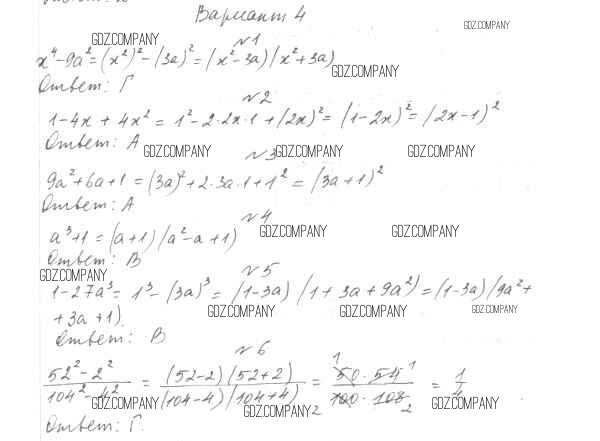 Вариант 4
GDZ.COMPANY
GDZ.COMPANY
№1
x⁴-9a²=(x²)²-(3a)²=(x²-3a)(x²+3a)
GDZ.COMPANY
Ответ: Г
№2
1-4x+4x²=1²-2·2x·1+(2x)²=(1-2x)²=(2x-1)²
Ответ: А
GDZ.COMPANY
№3
GDZ.COMPANY
GDZ.COMPANY
9a²+6a+1=(3a)²+2·3a·1+1²=(3a+1)²
Ответ: А
№4
a³+1=(a+1)(a²-a+1)
GDZ.COMPANY
GDZ.COMPANY
Ответ: В
GDZ.COMPANY
№5
1-27a³=1³-(3a)³=(1-3a)(1+3a+9a²)=(1-3a)(9a²+
+3a+1)
GDZ.COMPANY
GDZ.COMPANY
GDZ.COMPANY
Ответ: В
№6
(52²-2²)/(104²-4²)=((52-2)(52+2))/((104-4)(104+4))=(50·54)/(100·108)=1/4
GDZ.COMPANY
GDZ.COMPANY
GDZ.COMPANY
Ответ: Г.